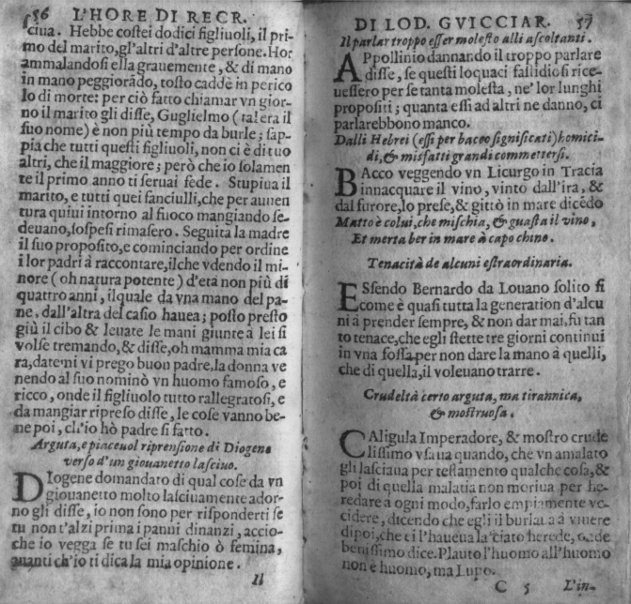 56 L'HORE DI RECR.
ciua. Hebbe costei dodici figliuoli, il pri-
mo del marito, gl'altri d'altre persone. Hor
ammalandosi ella grauemente, & di mano
in mano peggiorãdo, tosto cadde in perico
lo di morte: per ciò fatto chiamar vn gior-
no il marito gli disse, Guglielmo (tal era il
suo nome) è non più tempo da burle; sap-
pia che tutti questi figliuoli, non ci è di tuo
altri, che il maggiore; però che io solamen
te il primo anno ti seruai fede. Stupiua il
marito, e tutti quei fanciulli, che per auuen
tura quiui intorno al fuoco mangiando se-
deuano, sospesi rimasero. Seguita la madre
il suo proposito, e cominciando per ordine
i lor padri à raccontare, il che vdendo il mi-
nore (oh natura potente) d'età non più di
quattro anni, il quale da vna mano del pa-
ne, dall'altra del casio hauea; posto presto
giù il cibo & leuate le mani giunte à lei si
volse tremando, & disse, oh mamma mia ca
ra, datemi vi prego buon padre, la donna ve
nendo al suo nominò vn huomo famoso, e
ricco, onde il figliuolo tutto rallegratosi, e
da mangiar ripreso disse, le cose vanno be-
ne poi, ch'io hò padre sì fatto.
Arguta, e piaceuol riprensione di Diogene
verso d'un giouanetto lasciuo.
DIogene domandato di qual cose da vn
giouanetto molto lasciuamente ador-
no gli disse, io non sono per risponderti se
tu non t'alzi prima i panni dinanzi, accio-
che io vegga se tu sei maschio ò femina,
auanti ch'io ti dica la mia opinione.
Il
DI LOD. GVICCIAR. 57
Il parlar troppo esser molesto alli ascoltanti.
APpollinio dannando il troppo parlare
disse, se questi loquaci fastidiosi rice-
uessero per se tanta molesta, ne' lor lunghi
propositi; quanta essi ad altri ne danno, ci
parlarebbono manco.
Dalli Hebrei (essi per baceo significati) homici-
di, & misfatti grandi commettersi.
BAcco veggendo vn Licurgo in Tracia
innacquare il vino, vinto dall'ira, &
dal furore, lo prese, & gittò in mare dicẽdo
Matto è colui, che mischia, & guasta il vino,
Et merta ber in mare à capo chino.
Tenacità de alcuni estraordinaria.
ESsendo Bernardo da Louano solito si
come è quasi tutta la generation d'alcu
ni à prender sempre, & non dar mai, fu tan
to tenace, che egli stette tre giorni continui
in vna fossa, per non dare la mano à quelli,
che di quella, il voleuano trarre.
Crudeltà certo arguta, ma tirannica,
& mostruosa.
CAligula Imperadore, & mostro crude
lissimo vsaua quando, che vn amalato
gli lasciaua per testamento qualche cosa, &
poi di quella malatia non moriua per he-
redare a ogni modo, farlo empiamente vc-
cidere, dicendo che egli il burlaua à viuere
dipoi, che ci l'haueua lasciato herede, onde
benissimo dice. Plauto l'huomo all'huomo
non è huomo, ma Lupo.
C 5 L'in-